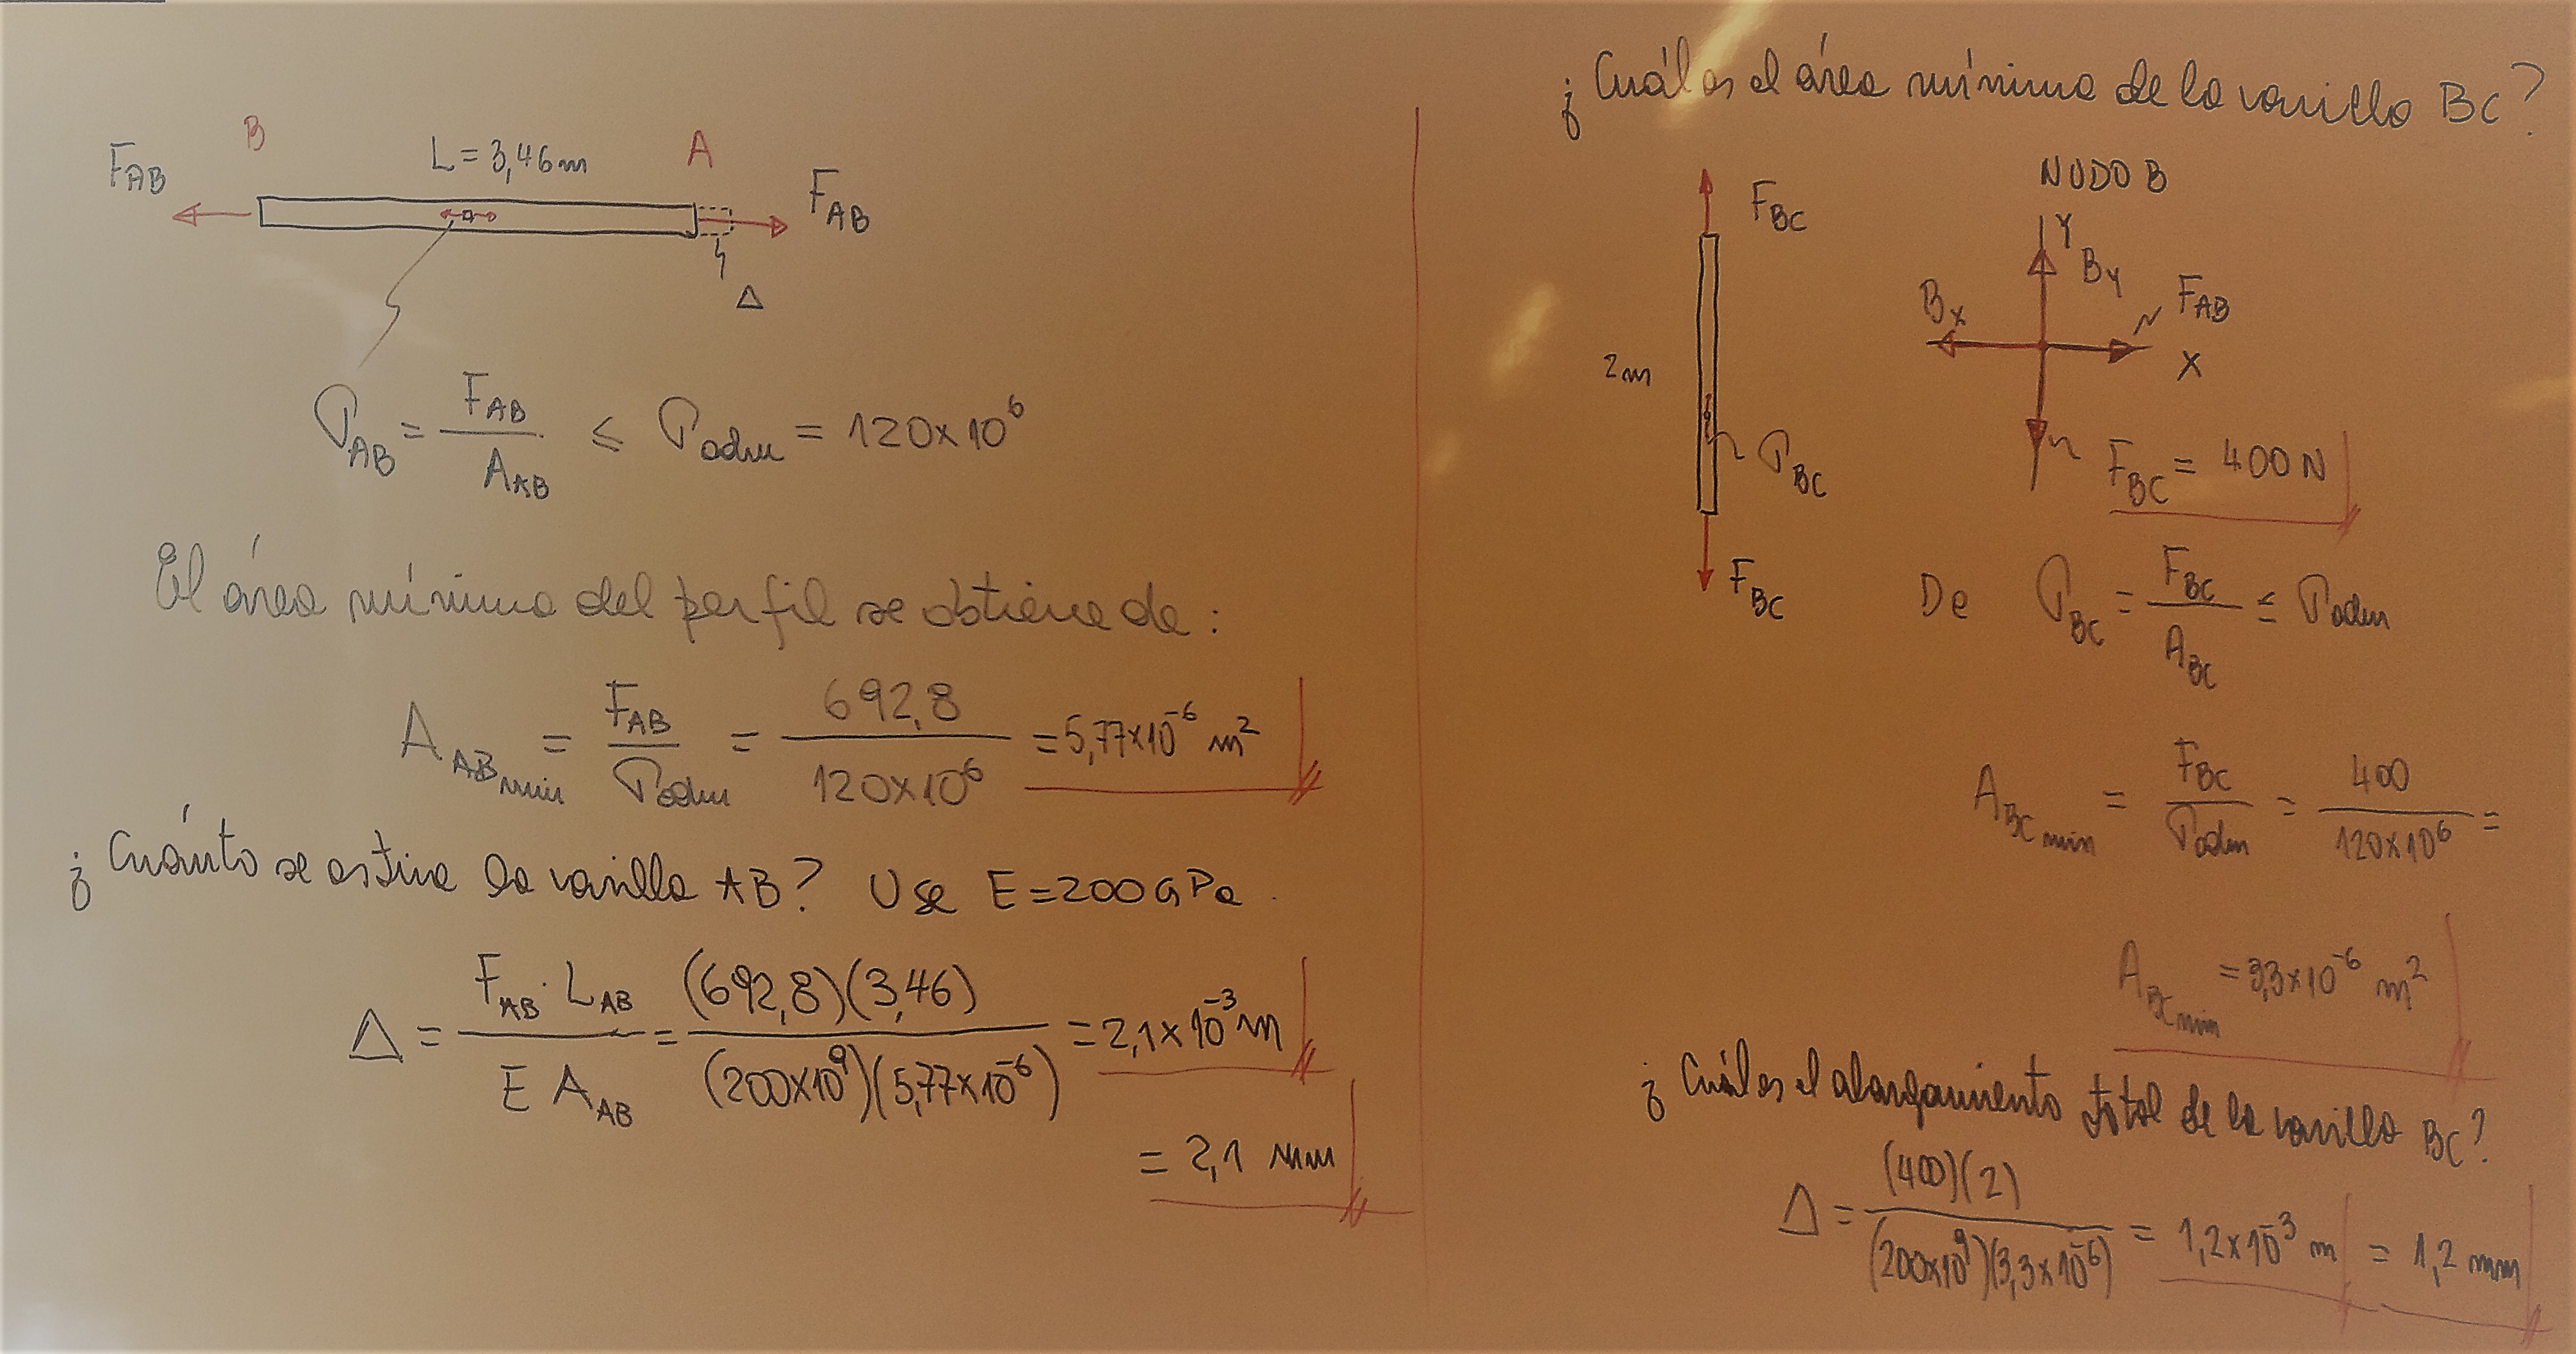 B
A
L = 3,46 m
F_AB
F_AB
Δ
σ_AB = F_AB / A_AB ≤ σ_adm = 120x10⁶
El área mínima del perfil se obtiene de:
A_ABmin = F_AB / σ_adm = 692,8 / 120x10⁶ = 5,77x10⁻⁶ m²
¿Cuánto se estira la varilla AB? Use E = 200 GPa.
Δ = F_AB · L_AB / E A_AB = (692,8)(3,46) / (200x10⁹)(5,77x10⁻⁶) = 2,1x10⁻³ m
= 2,1 mm
¿Cuál es el área mínima de la varilla BC?
F_BC
2m
σ_BC
F_BC
NUDO B
Y
B_Y
B_X
F_AB
X
F_BC = 400 N
De σ_BC = F_BC / A_BC ≤ σ_adm
A_BCmin = F_BC / σ_adm = 400 / 120x10⁶ =
A_BCmin = 3,3x10⁻⁶ m²
¿Cuál es el alargamiento total de la varilla BC?
Δ = (400)(2) / (200x10⁹)(3,3x10⁻⁶) = 1,2x10⁻³ m = 1,2 mm